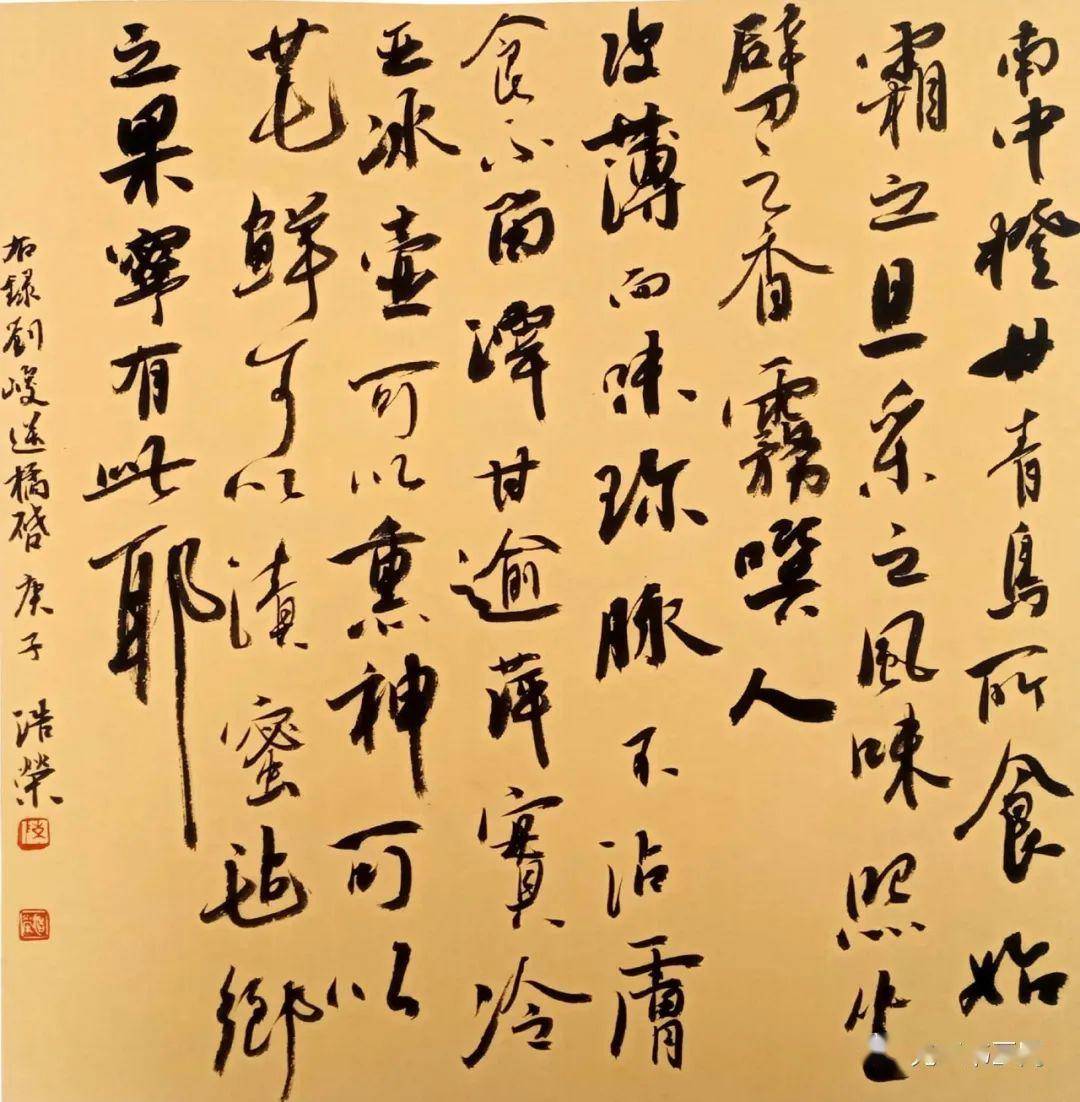 南中橙甘青鳥所食始
霜之旦采之風味照坐
劈之香霧噀人
皮薄而味珍脉不沾膚
食不留滓甘逾萍實冷
亞冰壺可以熏神可以
芼鮮可以漬蜜毡鄉
之果寧有此耶
右録劉峻送橘啓 庚子 浩榮